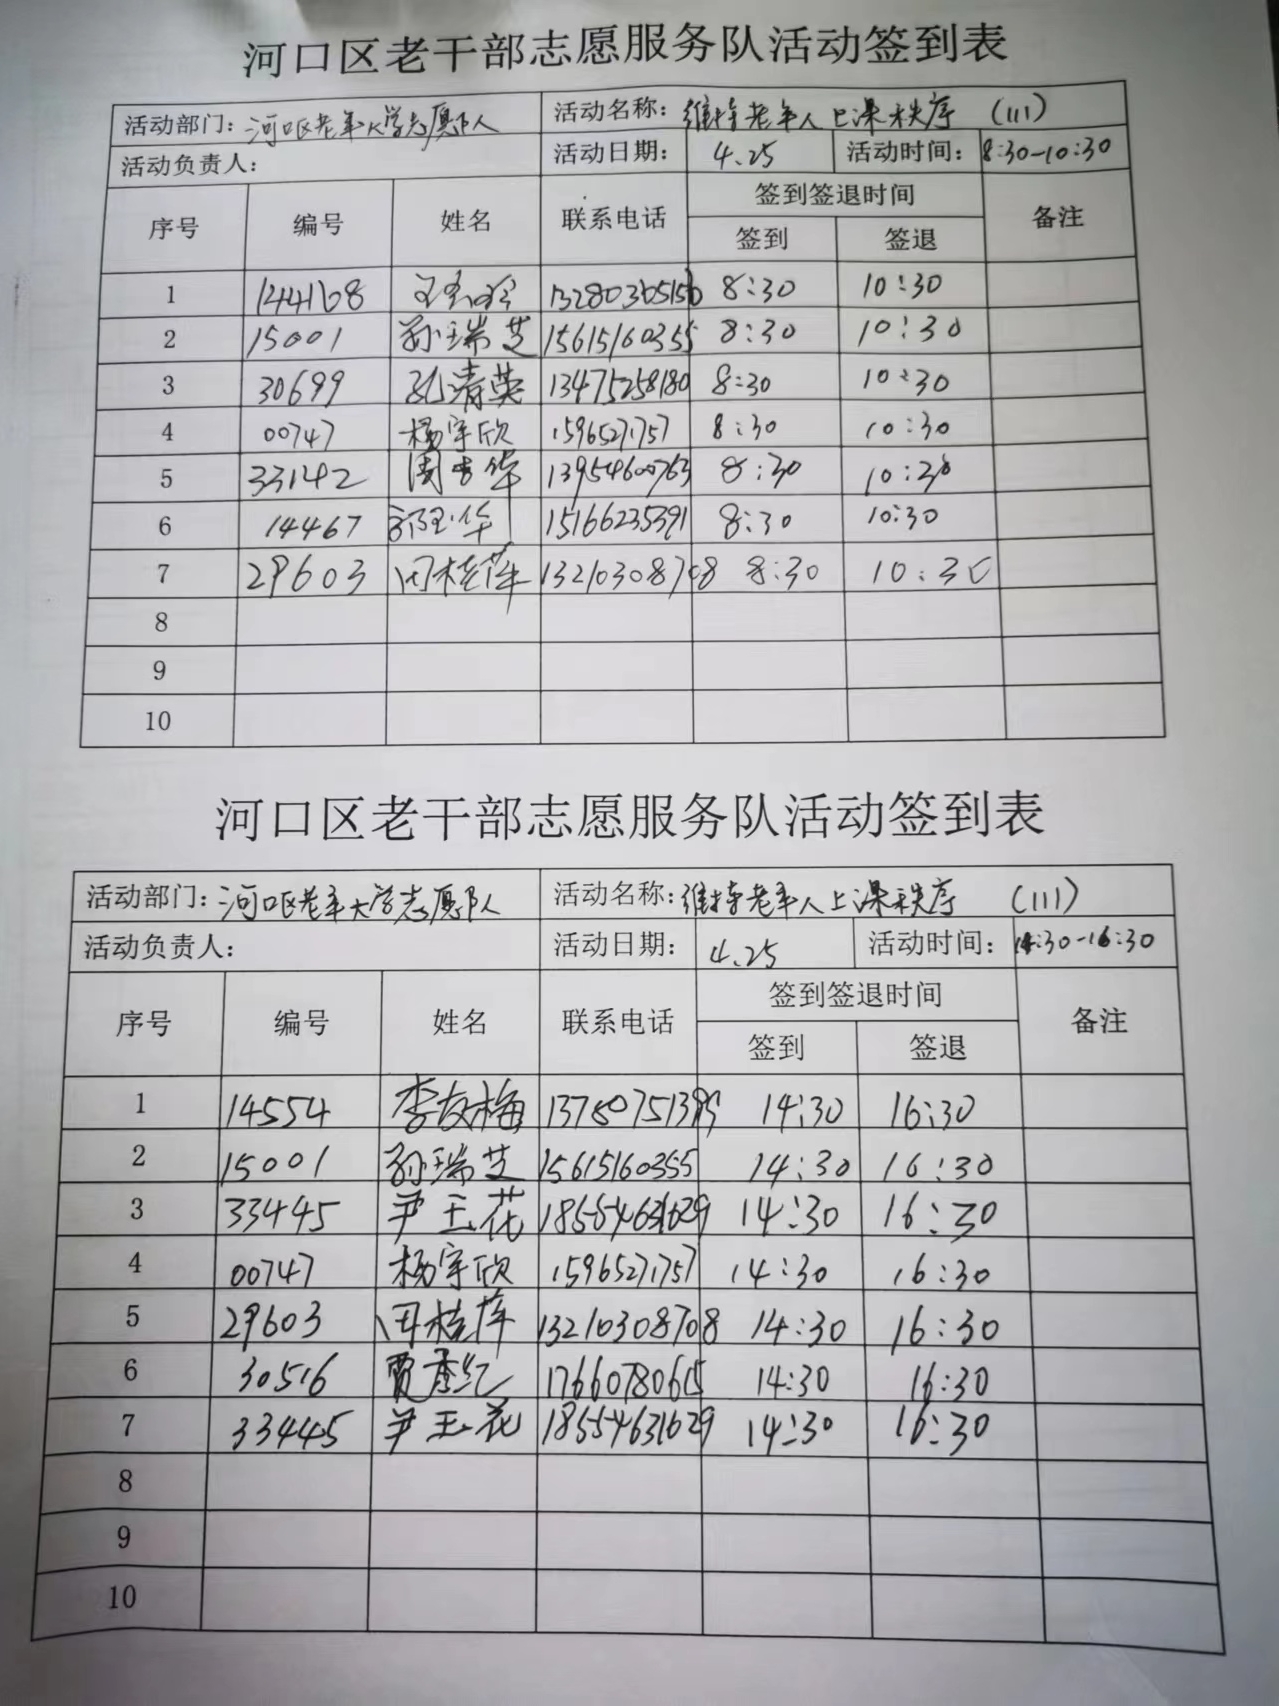 河口区老干部志愿服务队活动签到表
活动部门：河口区老年大学志愿队人 活动名称：维持老年人上课秩序 （111）
活动负责人： 活动日期： 4.25 活动时间：8:30-10:30
序号 编号 姓名 联系电话 签到签退时间 备注
签到 签退
1 144168 13280365156 8:30 10:30
2 15001 孙瑞芝 15615160355 8:30 10:30
3 30699 孔清英 13475258180 8:30 10:30
4 00747 杨宇欣 15965271757 8:30 10:30
5 33142 周秀华 13954600763 8:30 10:30
6 14467 郭玉华 15166235391 8:30 10:30
7 29603 田桂萍 13210308708 8:30 10:30
8
9
10
河口区老干部志愿服务队活动签到表
活动部门：河口区老年大学志愿队人 活动名称：维持老年人上课秩序 （111）
活动负责人： 活动日期： 4.25 活动时间：14:30-16:30
序号 编号 姓名 联系电话 签到签退时间 备注
签到 签退
1 14554 李友梅 14:30 16:30
2 15001 孙瑞芝 15615160355 14:30 16:30
3 33445 尹玉花 18554631629 14:30 16:30
4 00747 杨宇欣 15965271757 14:30 16:30
5 29603 田桂萍 13210308708 14:30 16:30
6 30516 贾秀红 17660780615 14:30 16:30
7 33445 尹玉花 18554631629 14:30 16:30
8
9
10